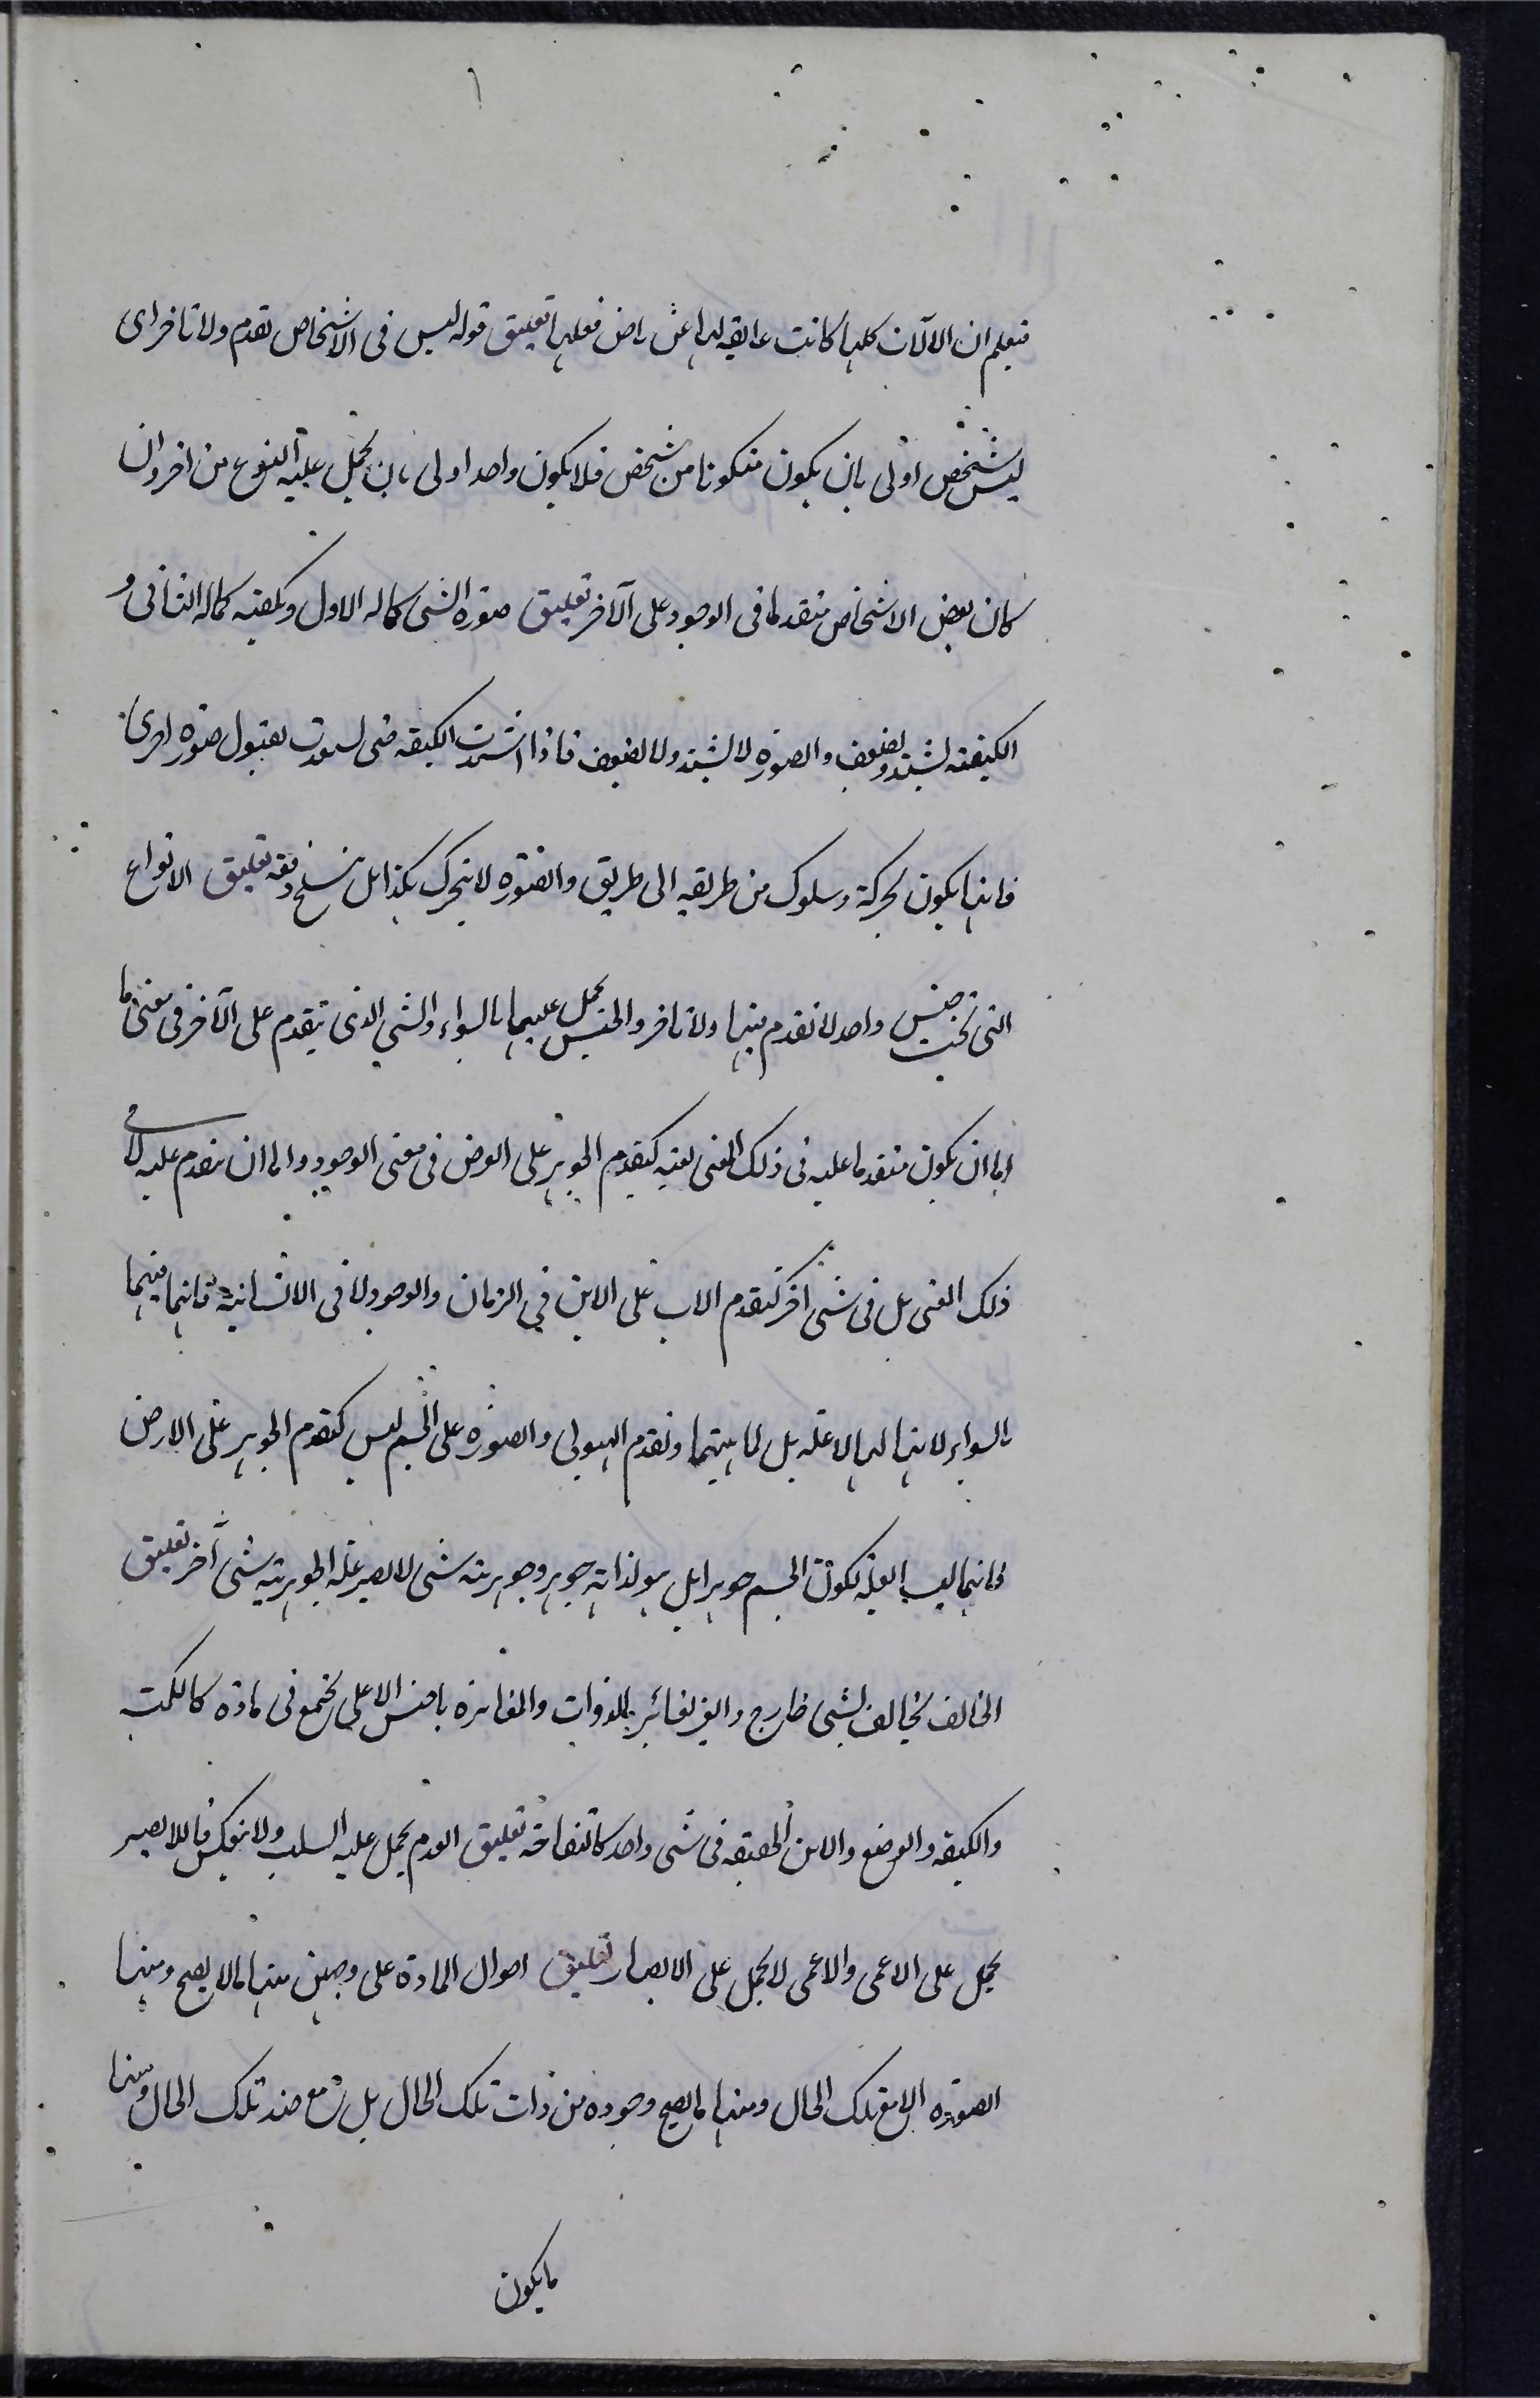 فتعلم ان الآلات كلها كانت عايقة لها عن خاص فعلها تعليق قوله ليس فى الاشخاص تقدم ولا تاخر اى
ليس شخص اولى بان يكون متكونا من شخص فلا يكون واحد اولى بان يحمل عليه النوع من اخر وان
كان بعض الاشخاص متقدما فى الوجود على الآخر تعليق صورة الشى كماله الاول وكيفيته كماله الثانى و
الكيفية تشتد وتضعف والصورة لا تشتد ولا تضعف فاذا اشتدت الكيفية حتى استعدت لقبول صورة اخرى
فانها يكون بحركة وسلوك من طريقه الى طريق والصورة لا يتحرك بكذا بل ينسلخ دفعة تعليق الانواع
التى تحت جنس واحد لا تقدم بينها ولا تاخر والجنس يحمل عليها بالسواء والشى الذى يتقدم على الآخر فى معنى ما
اما ان يكون متقدما عليه فى ذلك المعنى بعينه كتقدم الجوهر على العرض فى معنى الوجود واما ان يتقدم عليه لا فى
ذلك المعنى بل فى شى اخر كتقدم الاب على الابن فى الزمان والوجود لا فى الانسانية فانها فيهما
بالسواء لانها لهما لا علة بل لماهيتهما وتقدم الهيولى والصورة على الجسم ليس كتقدم الجوهر على الارض
فانهما ليسا لعلة لكون الجسم جوهرا بل هو لذاته جوهر وجوهرية شى لا يصير علة لجوهرية شى آخر تعليق
المخالف يخالف بشى خارج والغير يغاير بالذوات والمغايرة بالجنس الاعلى يجتمع فى مادة كالكمية
والكيفية والوضع والاين الحقيقة فى شى واحد كالتفاحة تعليق العدم يحمل عليه السلب ولا ينعكس فاللابصير
يحمل على الاعمى والاعمى لا يحمل على الابصار تعليق احوال المادة على وجهين منها ما لا يصح ومنها
الصورة الا مع تلك الحال ومنها ما يصح وجوده من ذات تلك الحال بل مع ضد تلك الحال ومنها
ما يكون